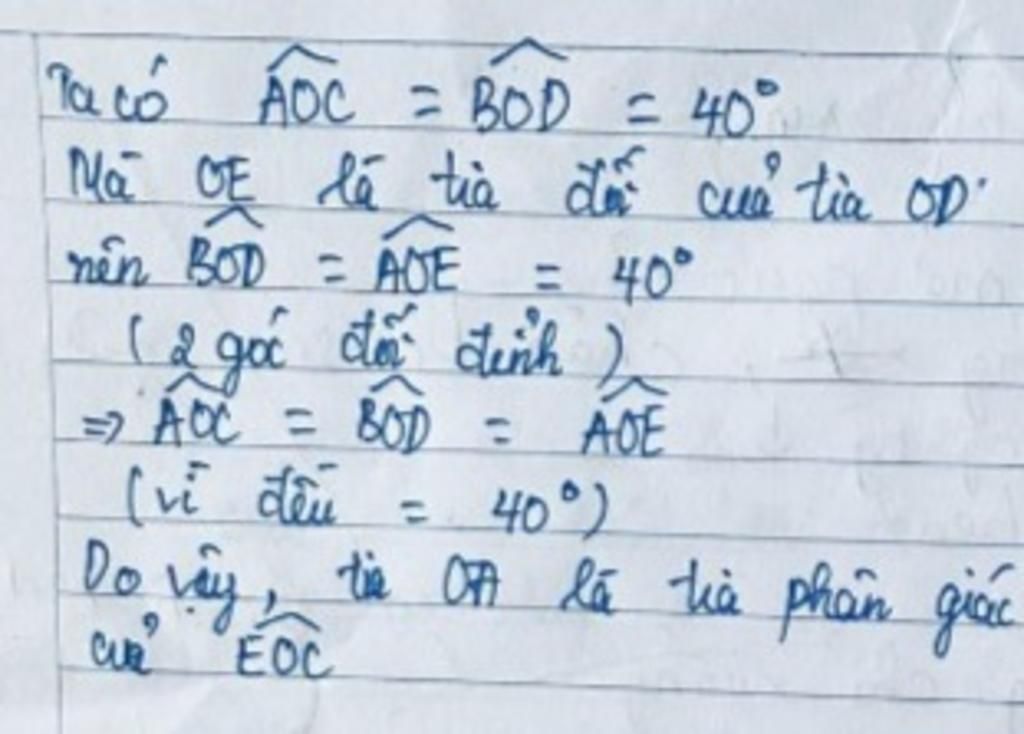 Ta có AOC = BOD = 40°
Mà OE là tia đối của tia OD
nên BOD = AOE = 40°
(2 góc đối đỉnh)
=> AOC = BOD = AOE
(vì đều = 40°)
Do vậy, tia OA là tia phân giác
của EOC